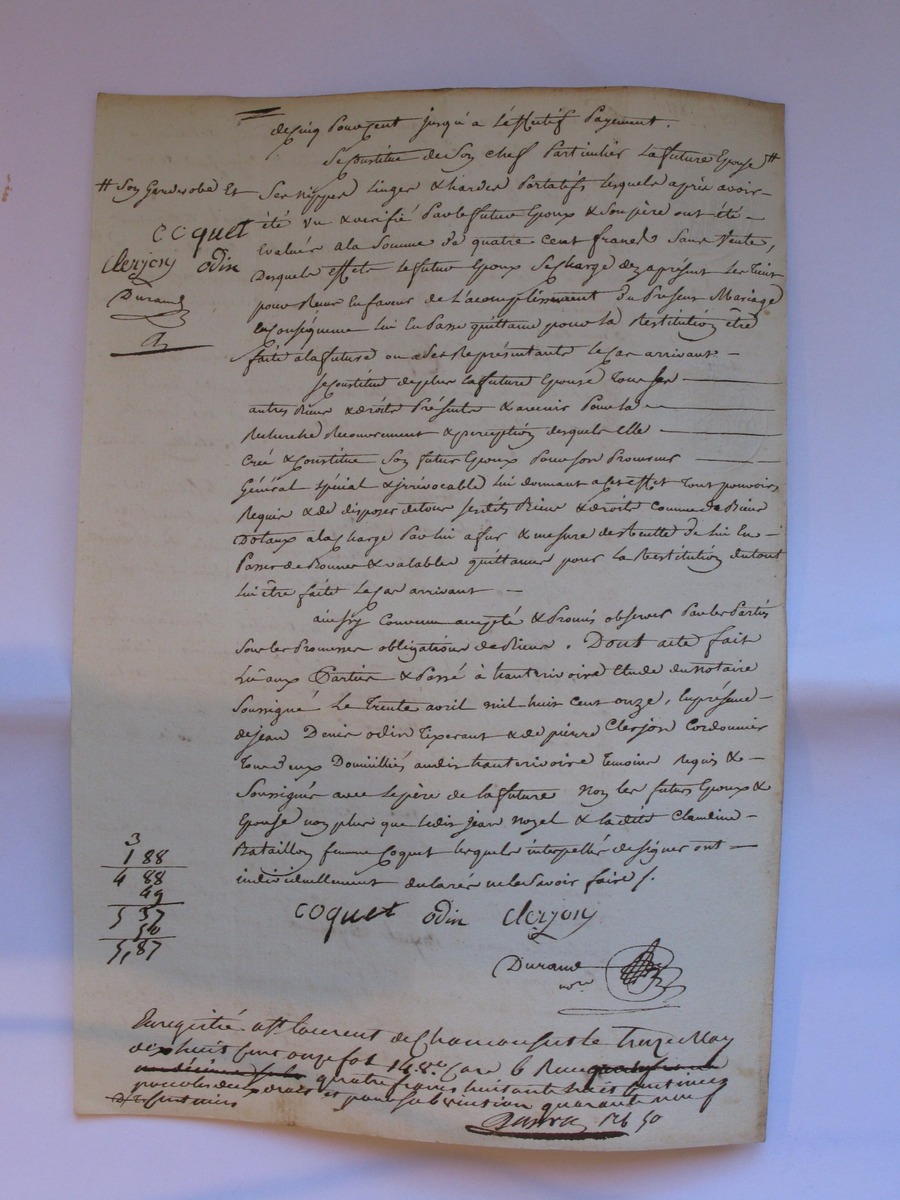 de Cinq Pour Cent jusqu'a l'Effectif Payement.
Se Constitue de Son chef Particulier la future Epouse #
# Son Garderobe Et
Ses nippes linges & hardes Portatifs lesquels après avoir
été vu & verifié Par le futur Epoux & Son père ont été
Evalués a la Somme de quatre cent francs Sans Vente,
Coquet
Clerjon odin
Durand
Desquels effets le futur Epoux Se charge dez aprésent les tient
pour Reçus En faveur de L'acomplissement du Présent Mariage
En Conséquence lui En Passe quittance pour la Restitution être
faite a la future ou a Ses Représentants le Cas arrivant.
Se Constitue de plus la future Epouse Tous Ses
autres Biens & droits Présents & avenir Pour la
Recherche Recouvrement & perception desquels Elle
Créé & Constitue Son futur Epoux Pour Son Procureur
Général Spécial & irrévocable lui donnant a Cet effet Tout pouvoir
Requis & de disposer de tous Sesdits Biens & droits Comme de Biens
Dotaux a la Charge Par lui a fur & mesure des Recette de lui En
Passer de Bonnes & valables quittances pour la Restitution du tout
lui être faite le Cas arrivant
ainsy Convenu accepté & Promis observer Par les Parties
Sous les Promesses obligations de Biens. Dont acte fait
Lu aux Parties & Passé à hauterivoire Etude du Notaire
Soussigné Le Trente avril mil huit Cent onze, En présence
de Jean Denis odin Tixerant & de pierre Clerjon Cordonnier
Tous deux Domiciliés audit hauterivoire Témoins Requis &
Soussignés avec le père de la future Non les futurs Epoux &
Epouse non plus que ledit Jean Noyel & ladite Claudine
Bataillon femme Coquet lesquels interpellés de signer ont
individuellement declarés ne le Savoir faire /.
3
1 88
4 88
49
5 37
50
5,87
Coquet odin Clerjon
Durand
nore
Enregistré a St laurent de Chamousset le treize May
dix huit Cent onze fol 148 Case 6 Reçu
quatre francs huitante huit Centimes
pour les deux droits et pour subvention quarante neuf
Centimes